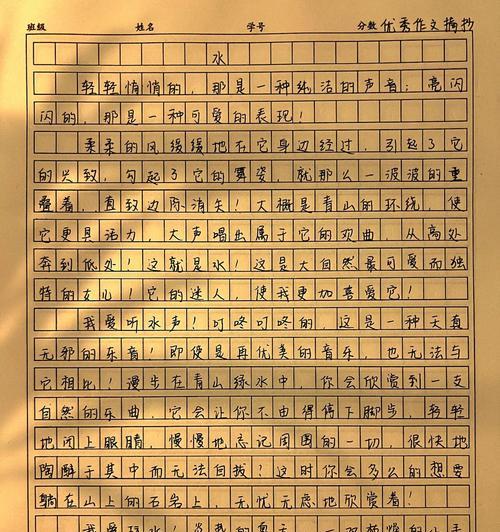 班级 姓名 学号 分数 优秀作文摘抄
水
轻轻悄悄的，那是一种纯洁的声音；亮闪
闪的，那是一种可爱的表现！
柔柔的风缓缓地在它身边经过，引起了它
的兴致，勾起了它的舞姿，就那么一波波的重
叠着，直致边际消失！大概是青山的环绕，使
它更具活力，大声唱出属于它的欢曲 从高处
奔到低处！这就是水！这是大自然最可爱而独
特的女儿！它的迷人，使我更加喜爱它！
我爱听水声！叮咚叮咚的，这是一种天真
无邪的乐音！即使是再优美的音乐，也无法与
它相比！漫步在青山绿水中，你会欣赏到一支
自然的乐曲，它会让你不由得停下脚步，轻轻
地闭上眼睛，慢慢地忘记周围的一切，很快地
陶醉于其中而无法自拔？这时你会多么的想要
躺在山上的石岩上，无忧无虑地欣赏着！